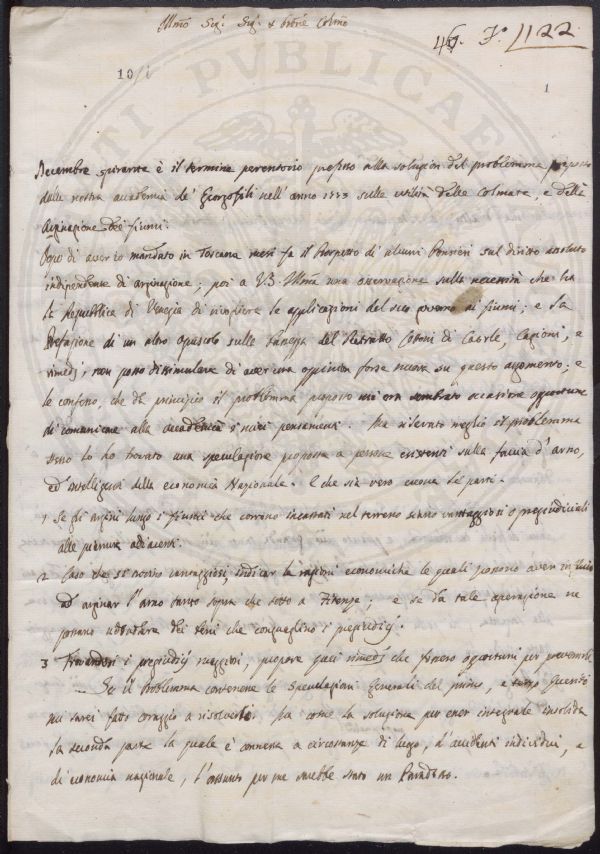 Illmo Sigr: Sigr: e Prōne Colmo
46. Fo. 1122
10/i
1
Decembre spirante è il termine perentorio prefisso alla soluzion del problemma proposto
dalla nostra accademia de' Georgofili nell'anno 1773 sulla utilità delle Colmate, e della
Arginazione dei fiumi.
Dopo di aver io mandato in Toscana mesi fa il Prospetto di alcuni Pensieri sul diritto assoluto
indipendente di arginazione; poi a V.S. Illma una osservazione sulla necessità che ha
la Repubblica di Venezia di rivogliere le applicazioni del suo governo ai fiumi; e la
Prefazione di un altro opuscolo sulle del Retratto Cottoni di Caorle, Cagioni, e
rimedj, non posso dissimulare di aver una opinion forse nuova su questo argomento; e
le confesso, che da principio il problemma proposto mi era sembrato occasione opportuna
di comunicare alla accademia i miei pensamenti. Ma rilevato meglio il problemma
stesso lo ho trovato una speculazione proposta a persone esistenti sulla faccia d'arno,
ed intelligenti della economia Nazionale. E che sia vero eccone le parti.
1 Se gli argini lungo i fiumi che corrono incassati nel terreno sieno vantaggiosi o pregiudiciali
alle pianure adiacenti.
2 Caso che si trovino vantaggiosi indicar le ragioni economiche le quali possono aver
ad arginar l'arno tanto sopra che sotto a Firenze; e se da tale operazione ne
possano ridondare dei beni che conguaglino i pregiudizj.
3 Trovandosi i pregiudizj maggiori, propone quai rimedj che fossero opportuni per prevenirli
Se il Problemma contenesse le speculazioni Generali del primo, e terzo Quesito
mi sarei fatto coraggio a risolverlo, ma come la soluzione per esser integrale
la seconda parte la quale è connessa a circostanze di luogo, d'accidenti individui, e
di economia nazionale, l'assunto per me sarebbe stato un Paradosso.